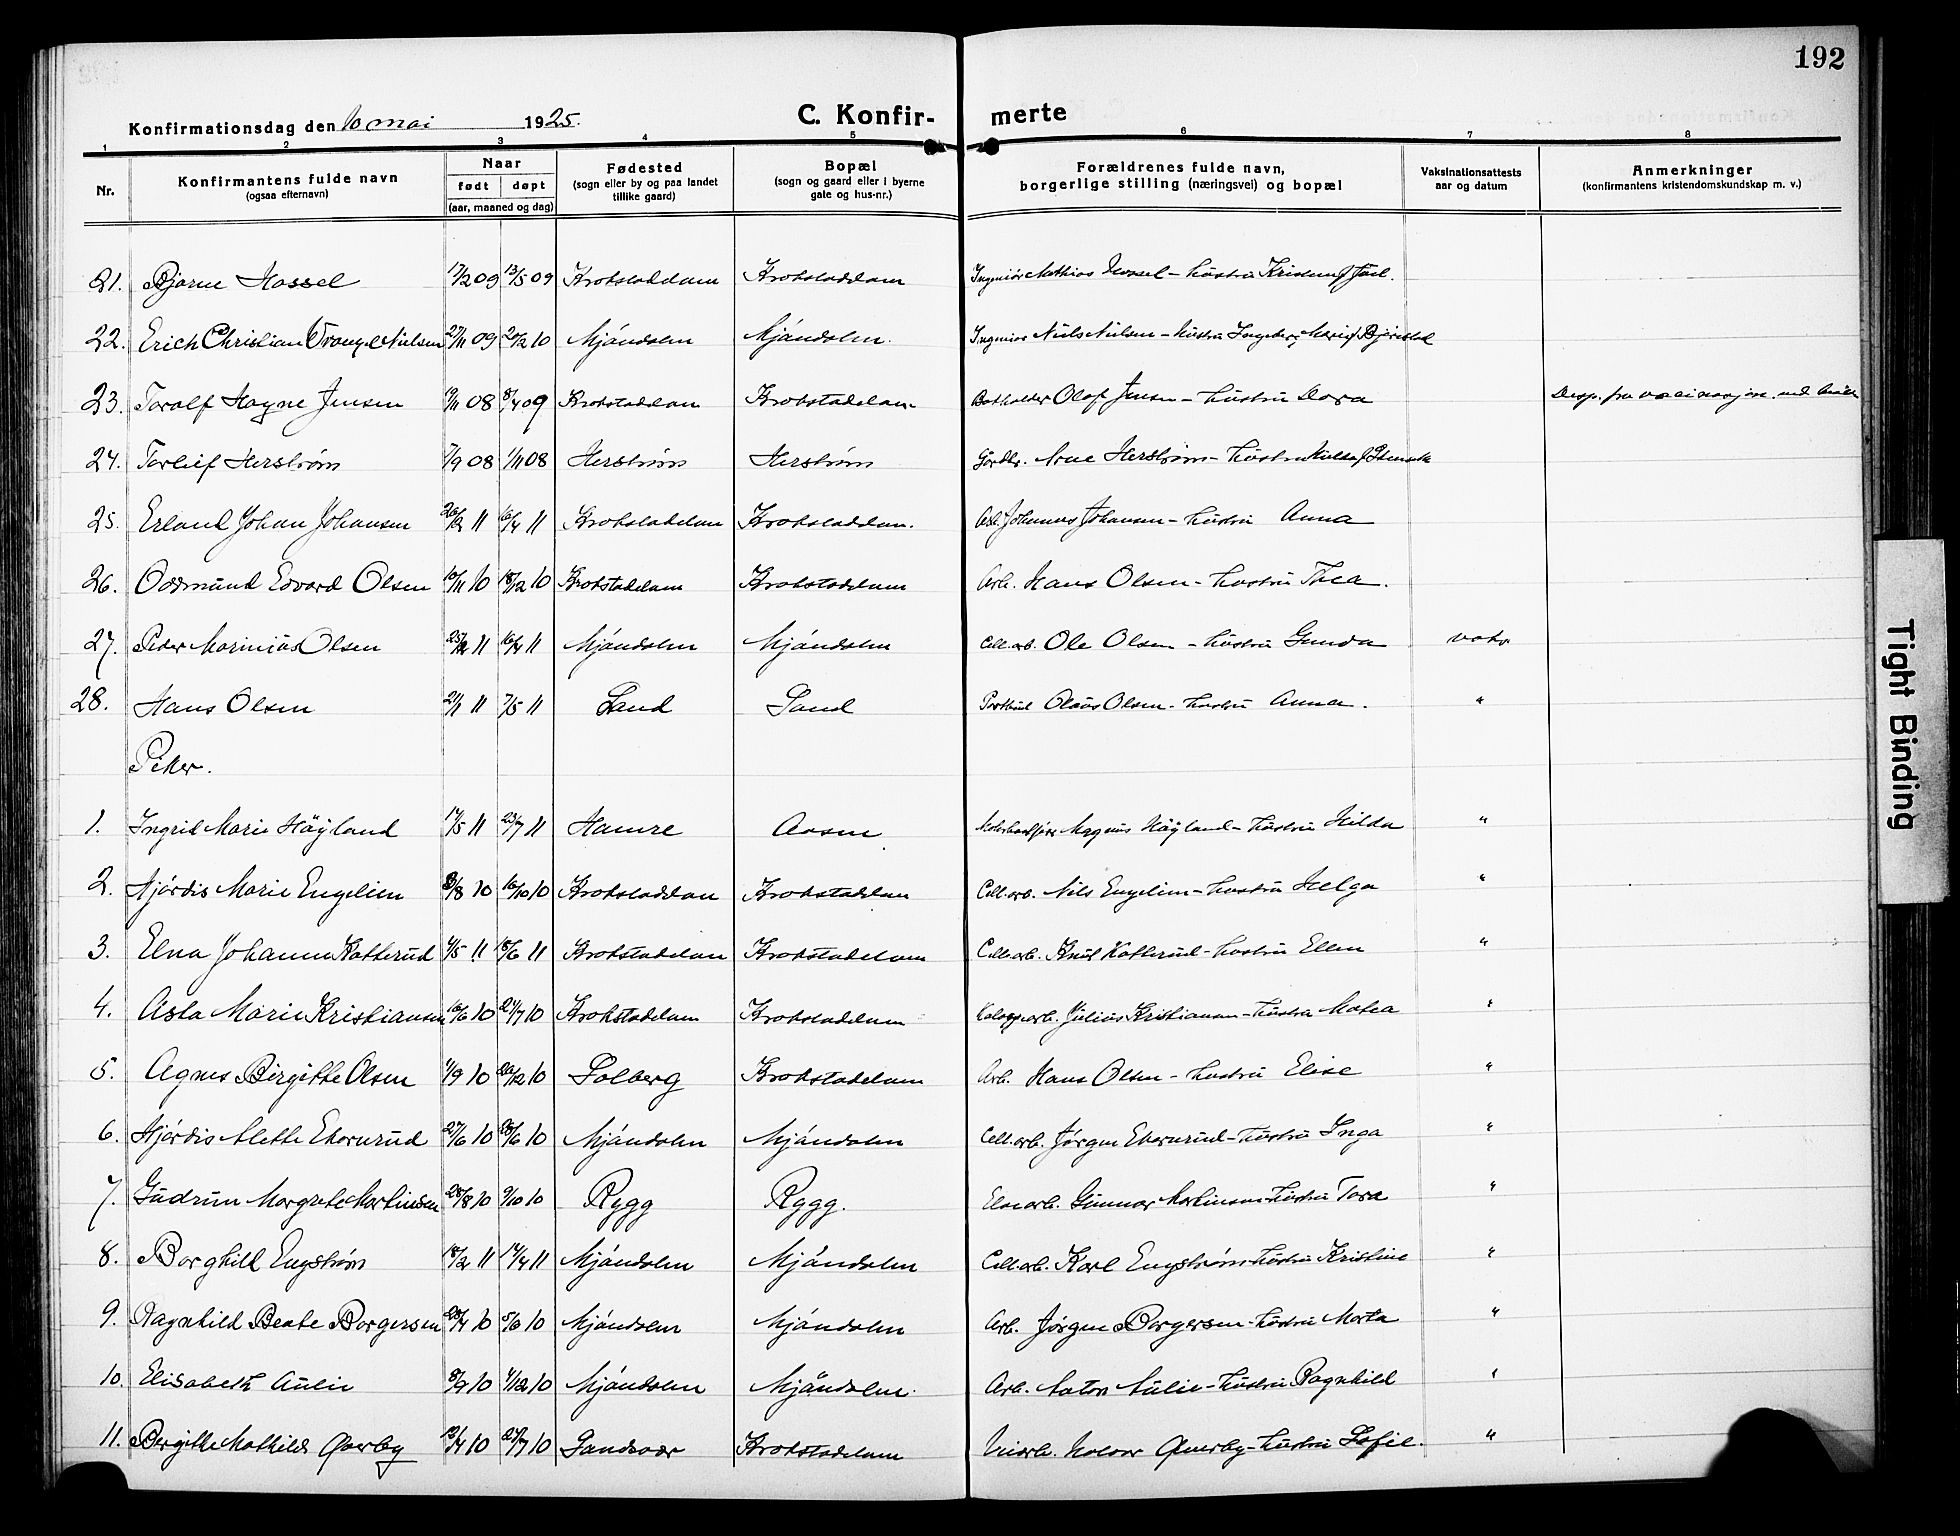 192
Konfirmationsdag den 10 mai 1925.
C. Konfir- merte
1 2 3 4 5 6 7 8
Nr.
Konfirmantens fulde navn
(ogsaa efternavn)
Naar
født døpt
(aar, maaned og dag)
Fødested
(sogn eller by og paa landet
tillike gaard)
Bopæl
(sogn og gaard eller i byerne
gate og hus-nr.)
Forældrenes fulde navn,
borgerlige stilling (næringsvei) og bopæl
Vaksinationsattests
aar og datum
Anmerkninger
(konfirmantens kristendomskundskap m. v.)
21. Bjarne Hassel 17/2 09 13/5 09 Krokstadelven Krokstadelven Ingeniør Mathias Hassel - hustru
22. Erich Christian Wrangel Nielsen 27/11 09 20/2 10 Mjøndalen Mjøndalen. Ingeniør Niels Nielsen - hustru Ingeborg Marie
23. Toralf Hagne Jensen 08 8/4 09 Krokstadelven Krokstadelven Olaf Jensen - hustru Dora
24. Torleif Herstrøm 7/9 08 1/11 08 Herstrøm Herstrøm Gårdbr. Arne Herstrøm - hustru
25. Erland Johan Johansen 26/2 11 16/4 11 Krokstadelven Krokstadelven. Arb. Johannes Johansen - hustru Anna
26. Oddmund Edvard Olsen 10/11 10 18/12 10 Krokstadelven Krokstadelven Arb. Hans Olsen - hustru Thea.
27. Peder Marinius Olsen 25/2 11 16/4 11 Mjøndalen Mjøndalen Cell.arb. Ole Olsen - hustru Gunda vaks.
28. Hans Olsen 2/1 11 7/5 11 Sand Sand Olaus Olsen - hustru Anna. "
Piker.
1. Ingrid Marie Høyland 17/5 11 23/7 11 Hamre Aasen Magnus Høyland - hustru Hilda "
2. Hjørdis Marie Engelien 10 16/10 10 Krokstadelven Krokstadelven Cell.arb. Nils Engelien - hustru Helga "
3. Elna Johanne Katterud 4/5 11 18/6 11 Krokstadelven Krokstadelven Cell.arb. Knut Katterud - hustru Ellen "
4. Asta Marie Kristiansen 16/6 10 24/7 10 Krokstadelven Krokstadelven Julius Kristiansen - hustru Matea "
5. Agnes Birgitte Olsen 4/9 10 26/12 10 Solberg Krokstadelven Arb. Hans Olsen - hustru Elise "
6. Hjørdis Alette Ekornrud 10 10 Mjøndalen Mjøndalen Cell.arb. Jørgen Ekornrud - hustru Inga "
7. Gudrun Margrete Martinsen 28/8 10 9/10 10 Rygg Rygg. Gunnar Martinsen - hustru Tora "
8. Borghild Engstrøm 18/2 11 17/4 11 Mjøndalen Mjøndalen Cell.arb. Karl Engstrøm - hustru Kristine "
9. Ragnhild Beate Borgersen 28/4 10 5/6 10 Mjøndalen Mjøndalen Arb. Jørgen Borgersen - hustru Marta "
10. Elisabeth Aulie 10 4/12 10 Mjøndalen Mjøndalen. Arb. Anton Aulie - hustru Ragnhild "
11. Birgitte Mathilde Qverby 10 24/7 10 Sandsvær Krokstadelven Qverby - hustru Sofie. "
Tight Binding